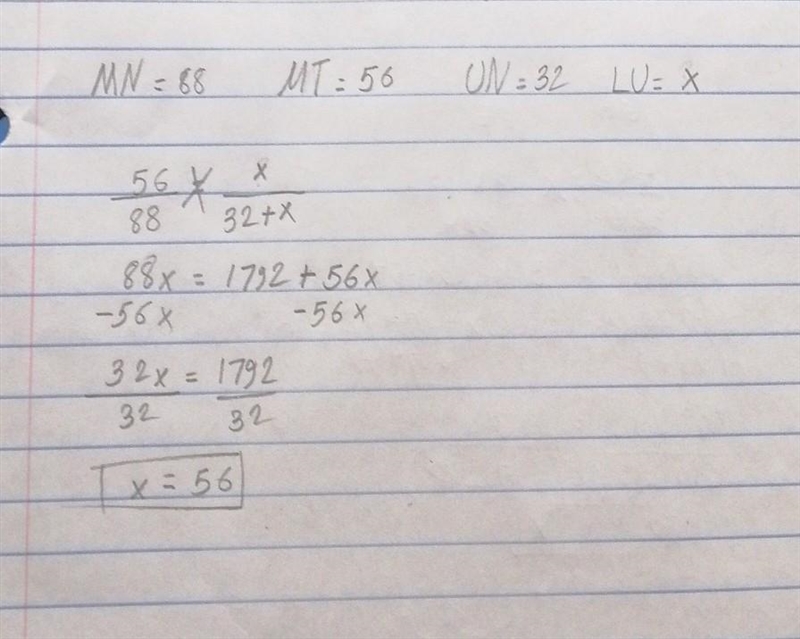 MN = 88 MT = 56 UN = 32 LU = x
56 x
88 32+x
88x = 1792 + 56x
-56x -56x
32x = 1792
32 32
x = 56